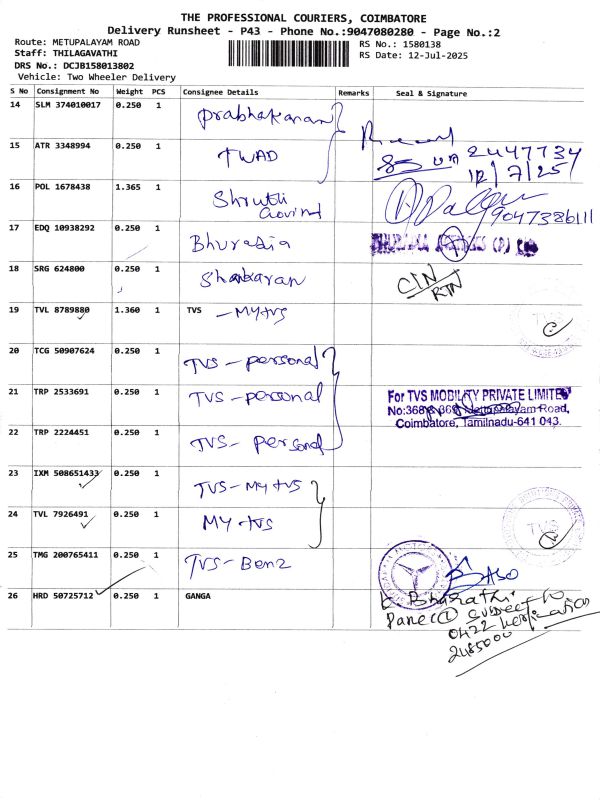 THE PROFESSIONAL COURIERS, COIMBATORE
Delivery Runsheet - P43 - Phone No.:9047080280 - Page No.:2
Route: METUPALAYAM ROAD
Staff: THILAGAVATHI
DRS No.: DCJB158013802
Vehicle: Two Wheeler Delivery
RS No.: 1580138
RS Date: 12-Jul-2025
S No Consignment No Weight PCS Consignee Details Remarks Seal & Signature
14 SLM 374010017 0.250 1 Prabhakaran
15 ATR 3349994 0.250 1 TWAD
2447734
12/7/25
16 POL 1678438 1.365 1 Shruthi Govind
9047386111
17 EDQ 10938292 0.250 1 Bhuratia
18 SRG 624800 0.250 1 Shankaran
CIN
RTN
19 TVL 8789880 1.360 1 TVS - MyTVS
TVS
20 TCG 50907624 0.250 1 TVS - personal
21 TRP 2533691 0.250 1 TVS - personal
For TVS MOBILITY PRIVATE LIMITED
Coimbatore, Tamilnadu-641 043.
22 TRP 2224451 0.250 1 TVS - personal
23 IXM 508651433 0.250 1 TVS - My tvs
24 TVL 7926491 0.250 1 MY tvs
TVS
25 TMG 200765411 0.250 1 TVS - Benz
26 HRD 50725712 0.250 1 GANGA
Bharathi
0422
2485000